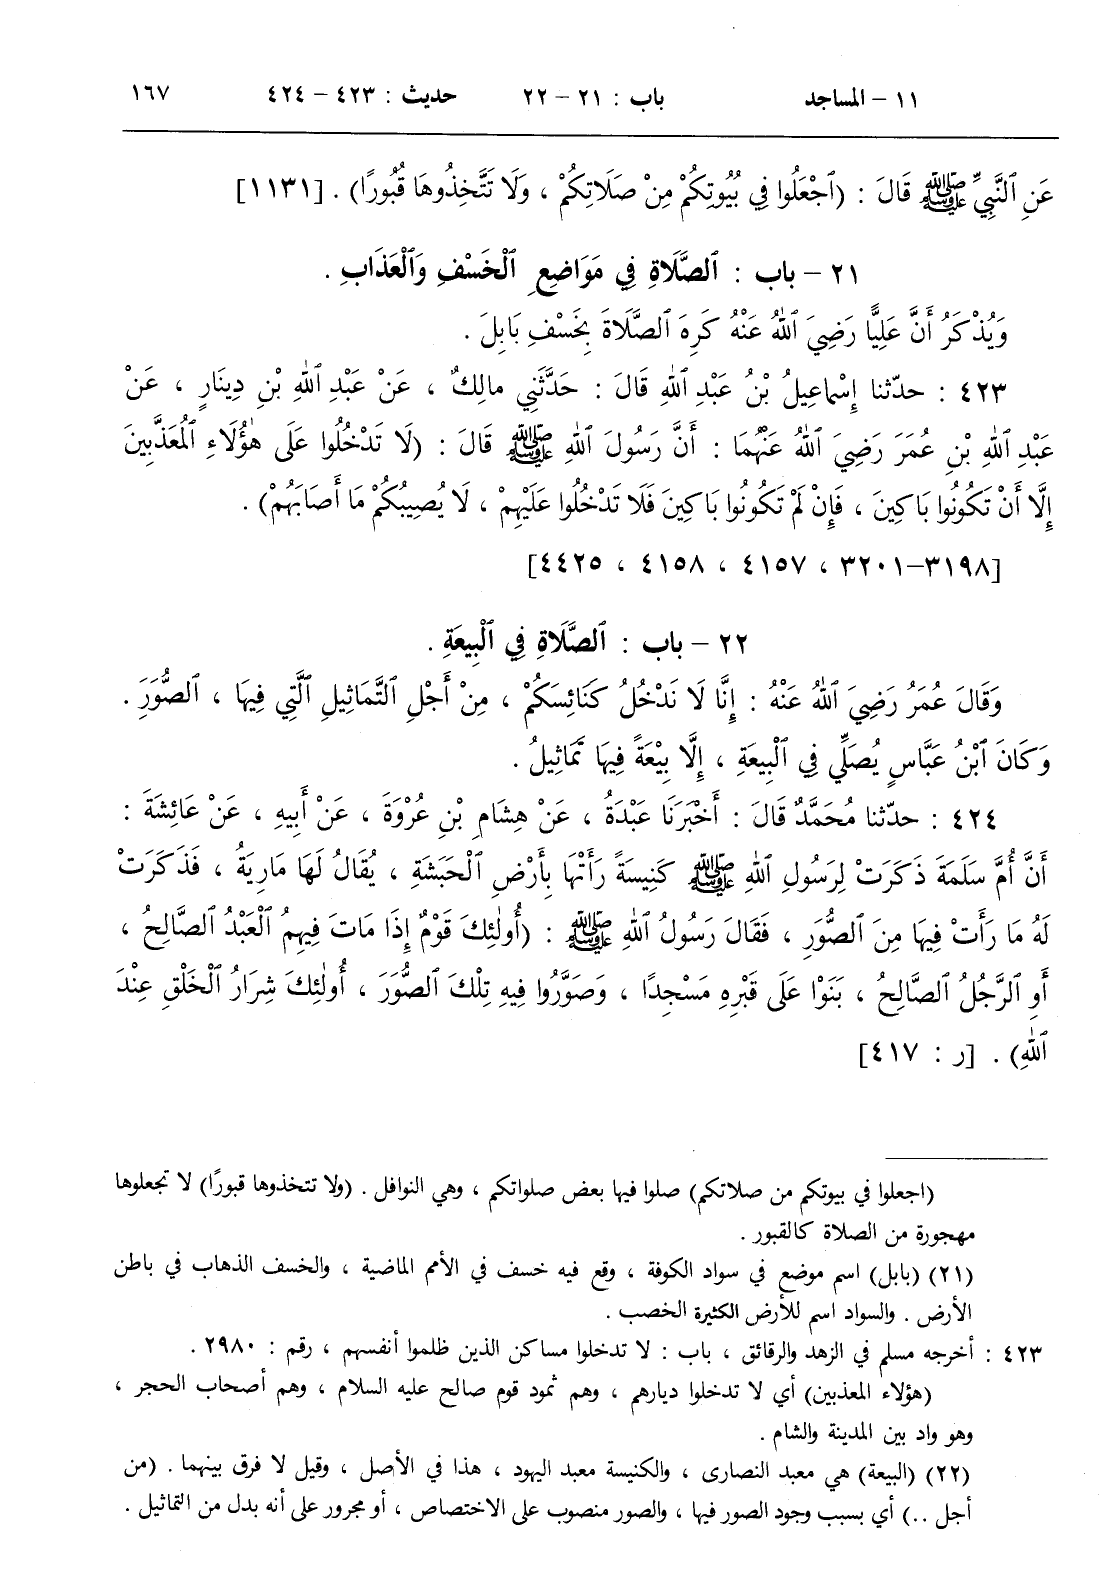 ١١ – المساجد باب : ٢١ – ٢٢ حديث : ٤٢٣ – ٤٢٤ ١٦٧
عَنِ ٱلنَّبِيِّ ﷺ قَالَ : (ٱجْعَلُوا فِي بُيُوتِكُمْ مِنْ صَلَاتِكُمْ ، وَلَا تَتَّخِذُوهَا قُبُورًا) . [١١٣١]
٢١ – باب : ٱلصَّلَاةِ فِي مَوَاضِعِ ٱلْخَسْفِ وَٱلْعَذَابِ .
وَيُذْكَرُ أَنَّ عَلِيًّا رَضِيَ ٱللهُ عَنْهُ كَرِهَ ٱلصَّلَاةَ بِخَسْفِ بَابِلَ .
٤٢٣ : حدّثنا إِسْماعِيلُ بْنُ عَبْدِ ٱللهِ قَالَ : حَدَّثَنِي مالِكٌ ، عَنْ عَبْدِ ٱللهِ بْنِ دِينَارٍ ، عَنْ
عَبْدِ ٱللهِ بْنِ عُمَرَ رَضِيَ ٱللهُ عَنْهُمَا : أَنَّ رَسُولَ ٱللهِ ﷺ قَالَ : (لَا تَدْخُلُوا عَلَى هٰؤُلَاءِ ٱلْمُعَذَّبِينَ
إِلَّا أَنْ تَكُونُوا بَاكِينَ ، فَإِنْ لَمْ تَكُونُوا بَاكِينَ فَلَا تَدْخُلُوا عَلَيْهِمْ ، لَا يُصِيبُكُمْ مَا أَصَابَهُمْ) .
[٣١٩٨–٣٢٠١ ، ٤١٥٧ ، ٤١٥٨ ، ٤٤٢٥]
٢٢ – باب : ٱلصَّلَاةِ فِي ٱلْبِيعَةِ .
وَقَالَ عُمَرُ رَضِيَ ٱللهُ عَنْهُ : إِنَّا لَا نَدْخُلُ كَنَائِسَكُمْ ، مِنْ أَجْلِ ٱلتَّمَاثِيلِ ٱلَّتِي فِيهَا ، ٱلصُّوَرَِ .
وَكَانَ ٱبْنُ عَبَّاسٍ يُصَلِّي فِي ٱلْبِيعَةِ ، إِلَّا بِيْعَةً فِيهَا تَمَاثِيلُ .
٤٢٤ : حدّثنا مُحَمَّدٌ قَالَ : أَخْبَرَنَا عَبْدَةُ ، عَنْ هِشَامِ بْنِ عُرْوَةَ ، عَنْ أَبِيهِ ، عَنْ عَائِشَةَ :
أَنَّ أُمَّ سَلَمَةَ ذَكَرَتْ لِرَسُولِ ٱللهِ ﷺ كَنِيسَةً رَأَتْهَا بِأَرْضِ ٱلْحَبَشَةِ ، يُقَالُ لَهَا مَارِيَةُ ، فَذَكَرَتْ
لَهُ مَا رَأَتْ فِيهَا مِنَ ٱلصُّوَرِ ، فَقَالَ رَسُولُ ٱللهِ ﷺ : (أُولٰئِكَ قَوْمٌ إِذَا مَاتَ فِيهِمُ ٱلْعَبْدُ ٱلصَّالِحُ ،
أَوِ ٱلرَّجُلُ ٱلصَّالِحُ ، بَنَوْا عَلَى قَبْرِهِ مَسْجِدًا ، وَصَوَّرُوا فِيهِ تِلْكَ ٱلصُّوَرَ ، أُولٰئِكَ شِرَارُ ٱلْخَلْقِ عِنْدَ
ٱللهِ) . [ر : ٤١٧]
(اجعلوا في بيوتكم من صلاتكم) صلوا فيها بعض صلواتكم ، وهي النوافل . (ولا تتخذوها قبورًا) لا تجعلوها
مهجورة من الصلاة كالقبور .
(٢١) (بابل) اسم موضع في سواد الكوفة ، وقع فيه خسف في الأمم الماضية ، والخسف الذهاب في باطن
الأرض . والسواد اسم للأرض الكثيرة الخصب .
٤٢٣ : أخرجه مسلم في الزهد والرقائق ، باب : لا تدخلوا مساكن الذين ظلموا أنفسهم ، رقم : ٢٩٨٠ .
(هؤلاء المعذبين) أي لا تدخلوا ديارهم ، وهم ثمود قوم صالح عليه السلام ، وهم أصحاب الحجر ،
وهو واد بين المدينة والشام .
(٢٢) (البيعة) هي معبد النصارى ، والكنيسة معبد اليهود ، هذا في الأصل ، وقيل لا فرق بينهما . (من
أجل ..) أي بسبب وجود الصور فيها ، والصور منصوب على الاختصاص ، أو مجرور على أنه بدل من التماثيل .